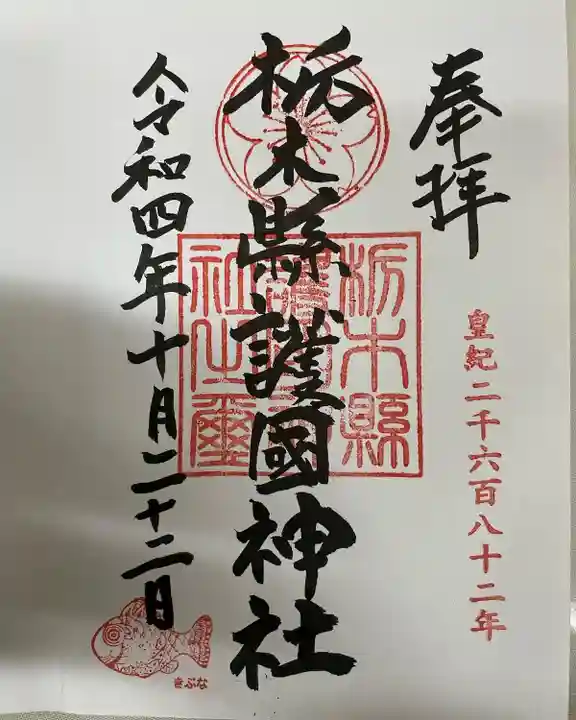 奉拝
皇紀二千六百八十二年
栃木縣護國神社
栃木縣護國神社之璽
令和四年十月二十二日
きぶな